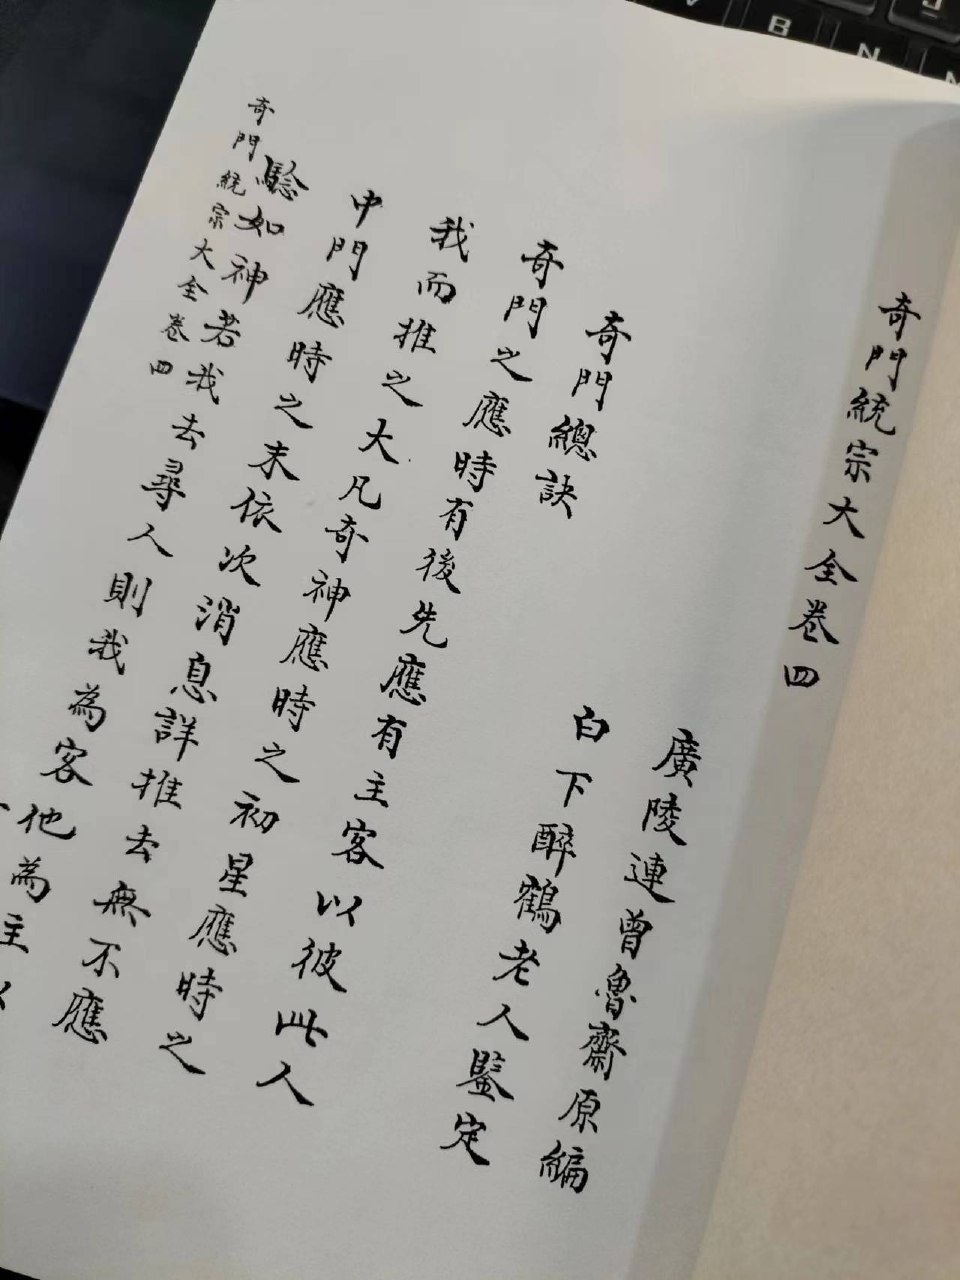 奇門統宗大全卷四
廣陵連曾魯齋原編
白下醉鶴老人鑒定
奇門總訣
奇門之應時有後先應有主客以彼此人
我而推之大凡奇神應時之初星應時之
中門應時之末依次消息詳推去無不應
驗如神若我去尋人則我為客他為主
奇門統宗大全卷四
B
N